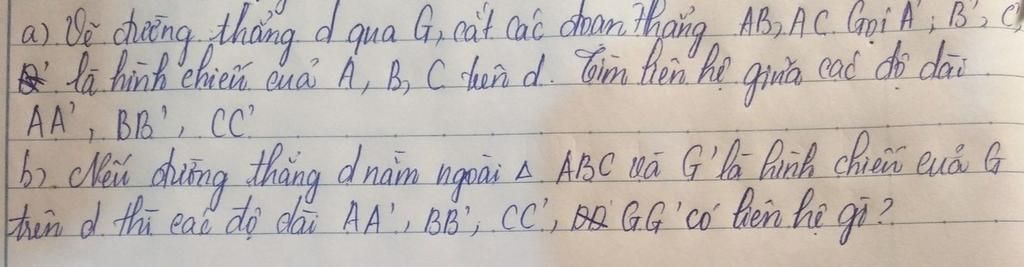 a) Vẽ đường thẳng d qua G, cắt các đoạn thẳng AB, AC. Gọi A', B', C'
là hình chiếu của A, B, C trên d. Tìm liên hệ giữa các độ dài
AA', BB', CC'
b) Nếu đường thẳng d nằm ngoài △ ABC và G' là hình chiếu của G
trên d thì các độ dài AA', BB', CC', GG' có liên hệ gì?